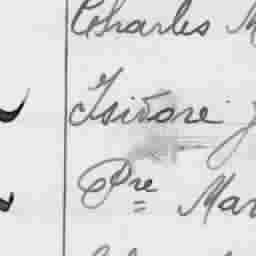 Charles M
Isidore J
Pre Mar